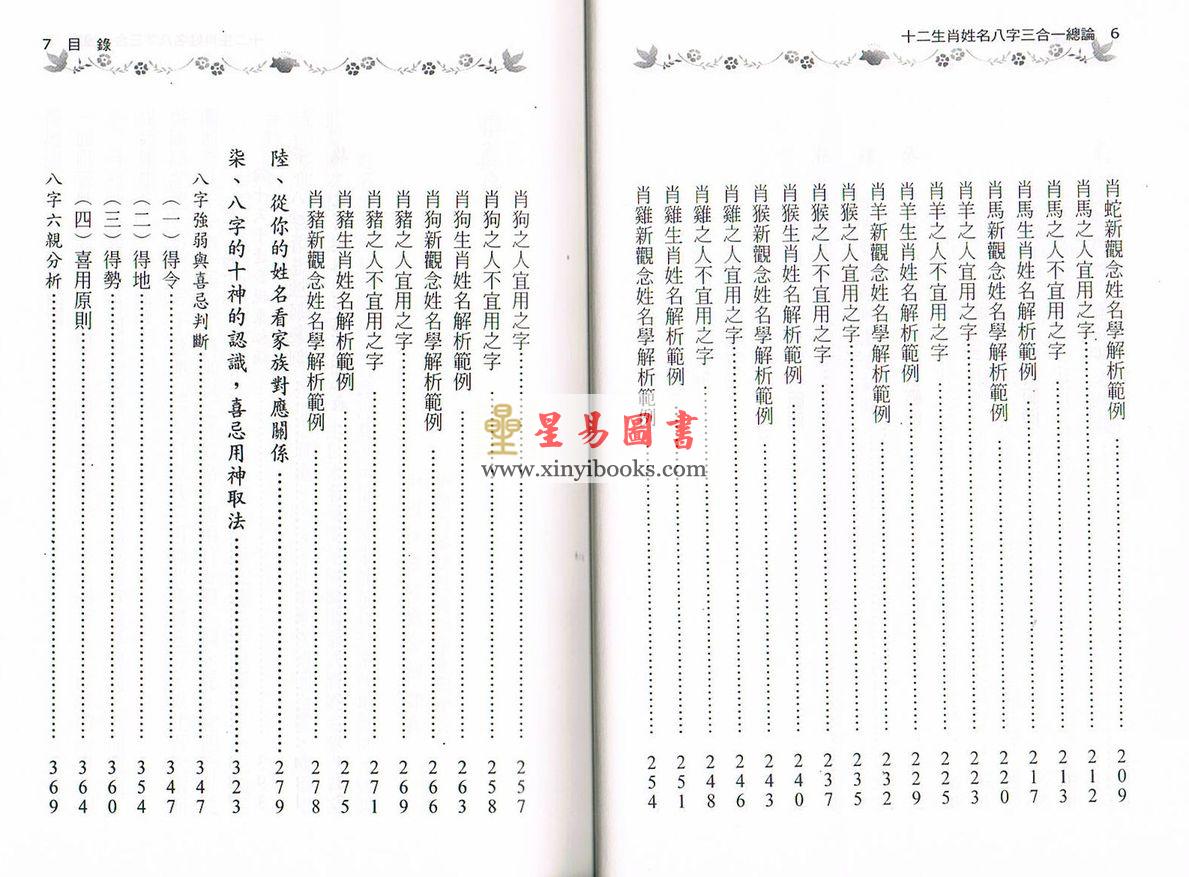 十二生肖姓名八字三合一總論 6
肖蛇新觀念姓名學解析範例……209
肖馬之人宜用之字……212
肖馬之人不宜用之字……213
肖馬生肖姓名解析範例……217
肖馬新觀念姓名學解析範例……220
肖羊之人宜用之字……223
肖羊之人不宜用之字……225
肖羊生肖姓名解析範例……229
肖羊新觀念姓名學解析範例……232
肖猴之人宜用之字……235
肖猴之人不宜用之字……237
肖猴生肖姓名解析範例……240
肖猴新觀念姓名學解析範例……243
肖雞之人宜用之字……246
肖雞之人不宜用之字……248
肖雞生肖姓名解析範例……251
肖雞新觀念姓名學解析範例……254
7 目錄
肖狗之人宜用之字……257
肖狗之人不宜用之字……258
肖狗生肖姓名解析範例……263
肖狗新觀念姓名學解析範例……266
肖豬之人宜用之字……269
肖豬之人不宜用之字……271
肖豬生肖姓名解析範例……275
肖豬新觀念姓名學解析範例……278
陸、從你的姓名看家族對應關係……279
柒、八字的十神的認識，喜忌用神取法……323
八字強弱與喜忌判斷……347
（一）得令……347
（二）得地……354
（三）得勢……360
（四）喜用原則……364
八字六親分析……369
星易圖書
www.xinyibooks.com